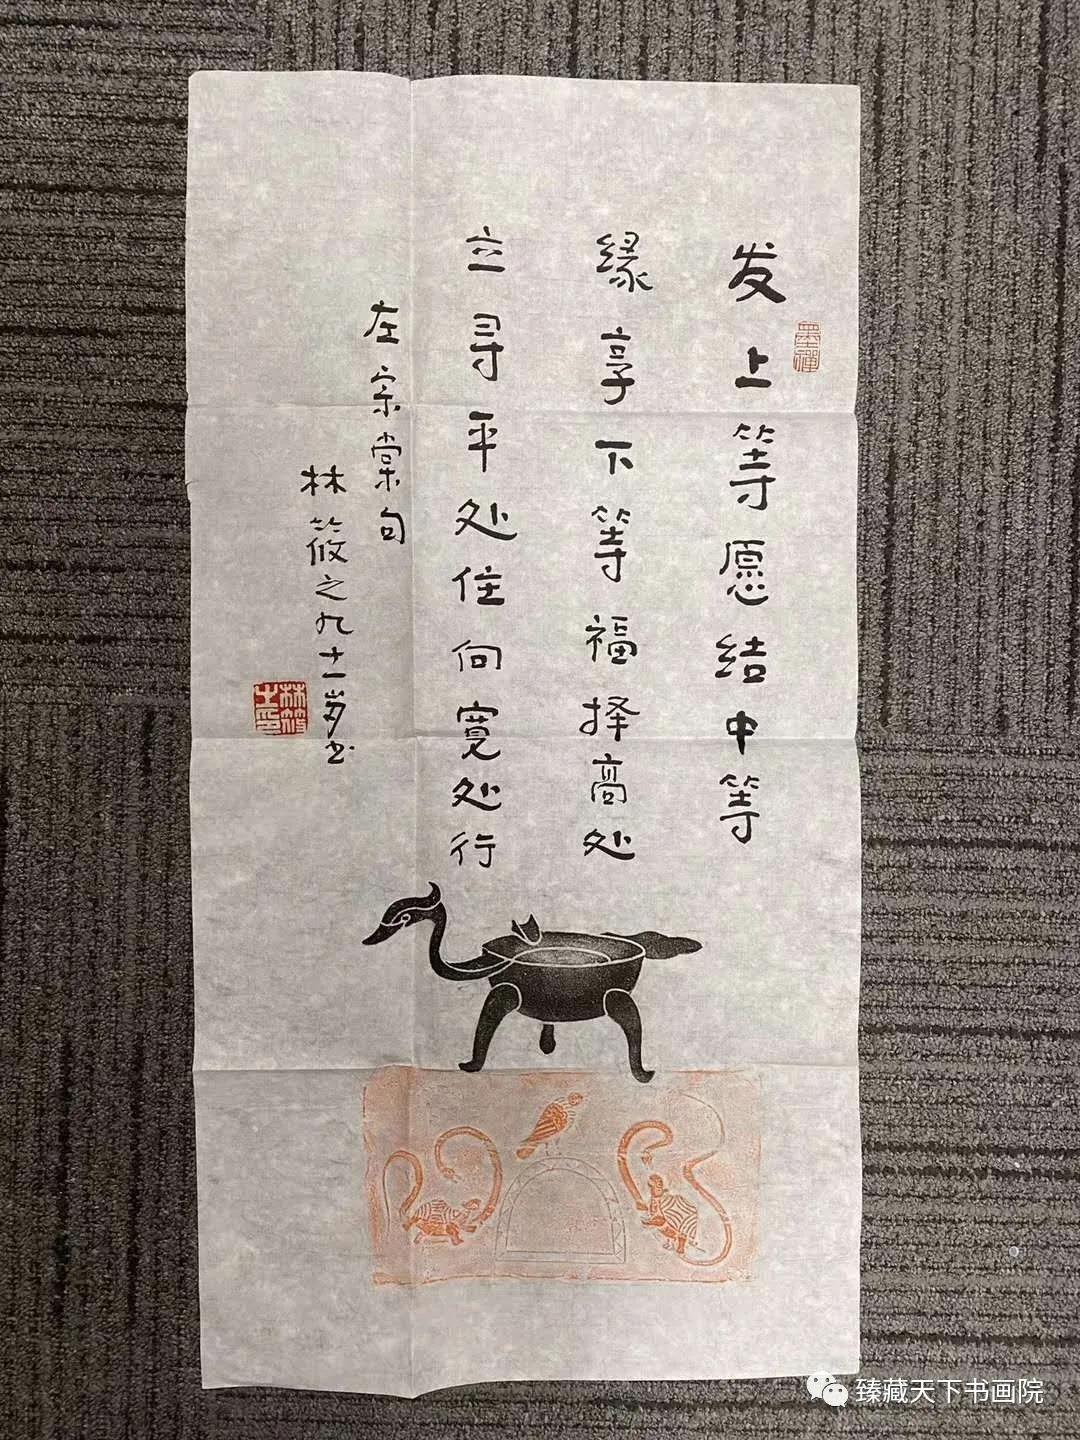 发上等愿结中等
缘享下等福择高处
立寻平处住向宽处行
左宗棠句
林筱之九十一岁书
墨禅
林筱之印
臻藏天下书画院